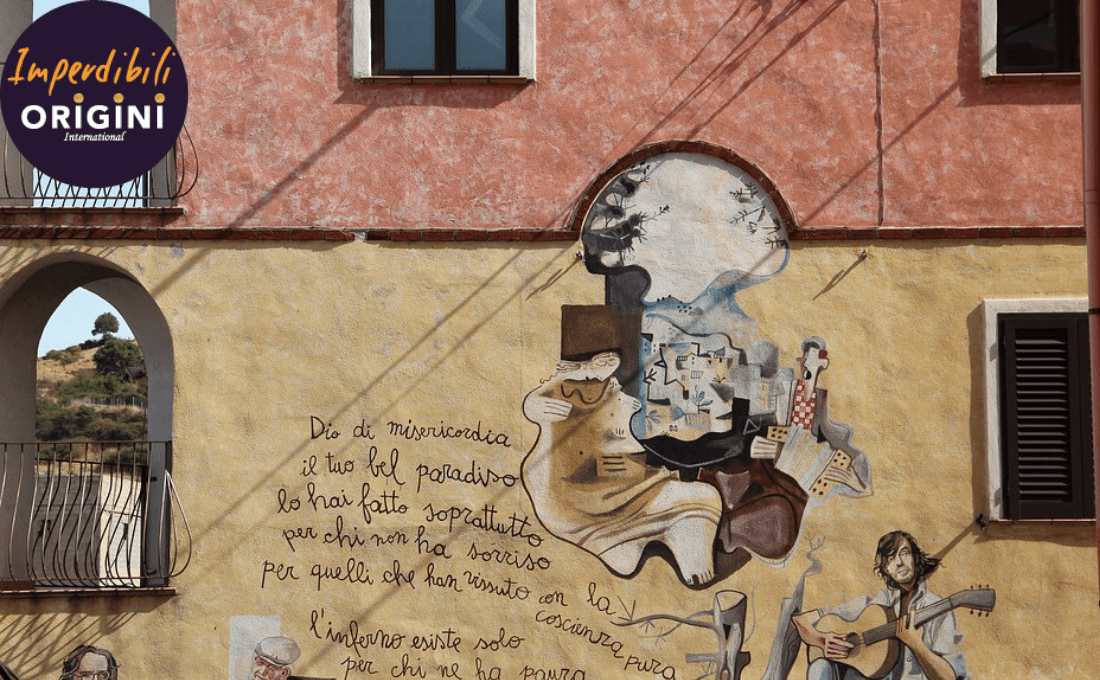 Imperdibili
ORIGINI
International
Dio di misericordia
il tuo bel paradiso
lo hai fatto soprattutto
per chi non ha sorriso
per quelli che han vissuto con la
coscienza pura
l'inferno esiste solo
per chi ne ha paura